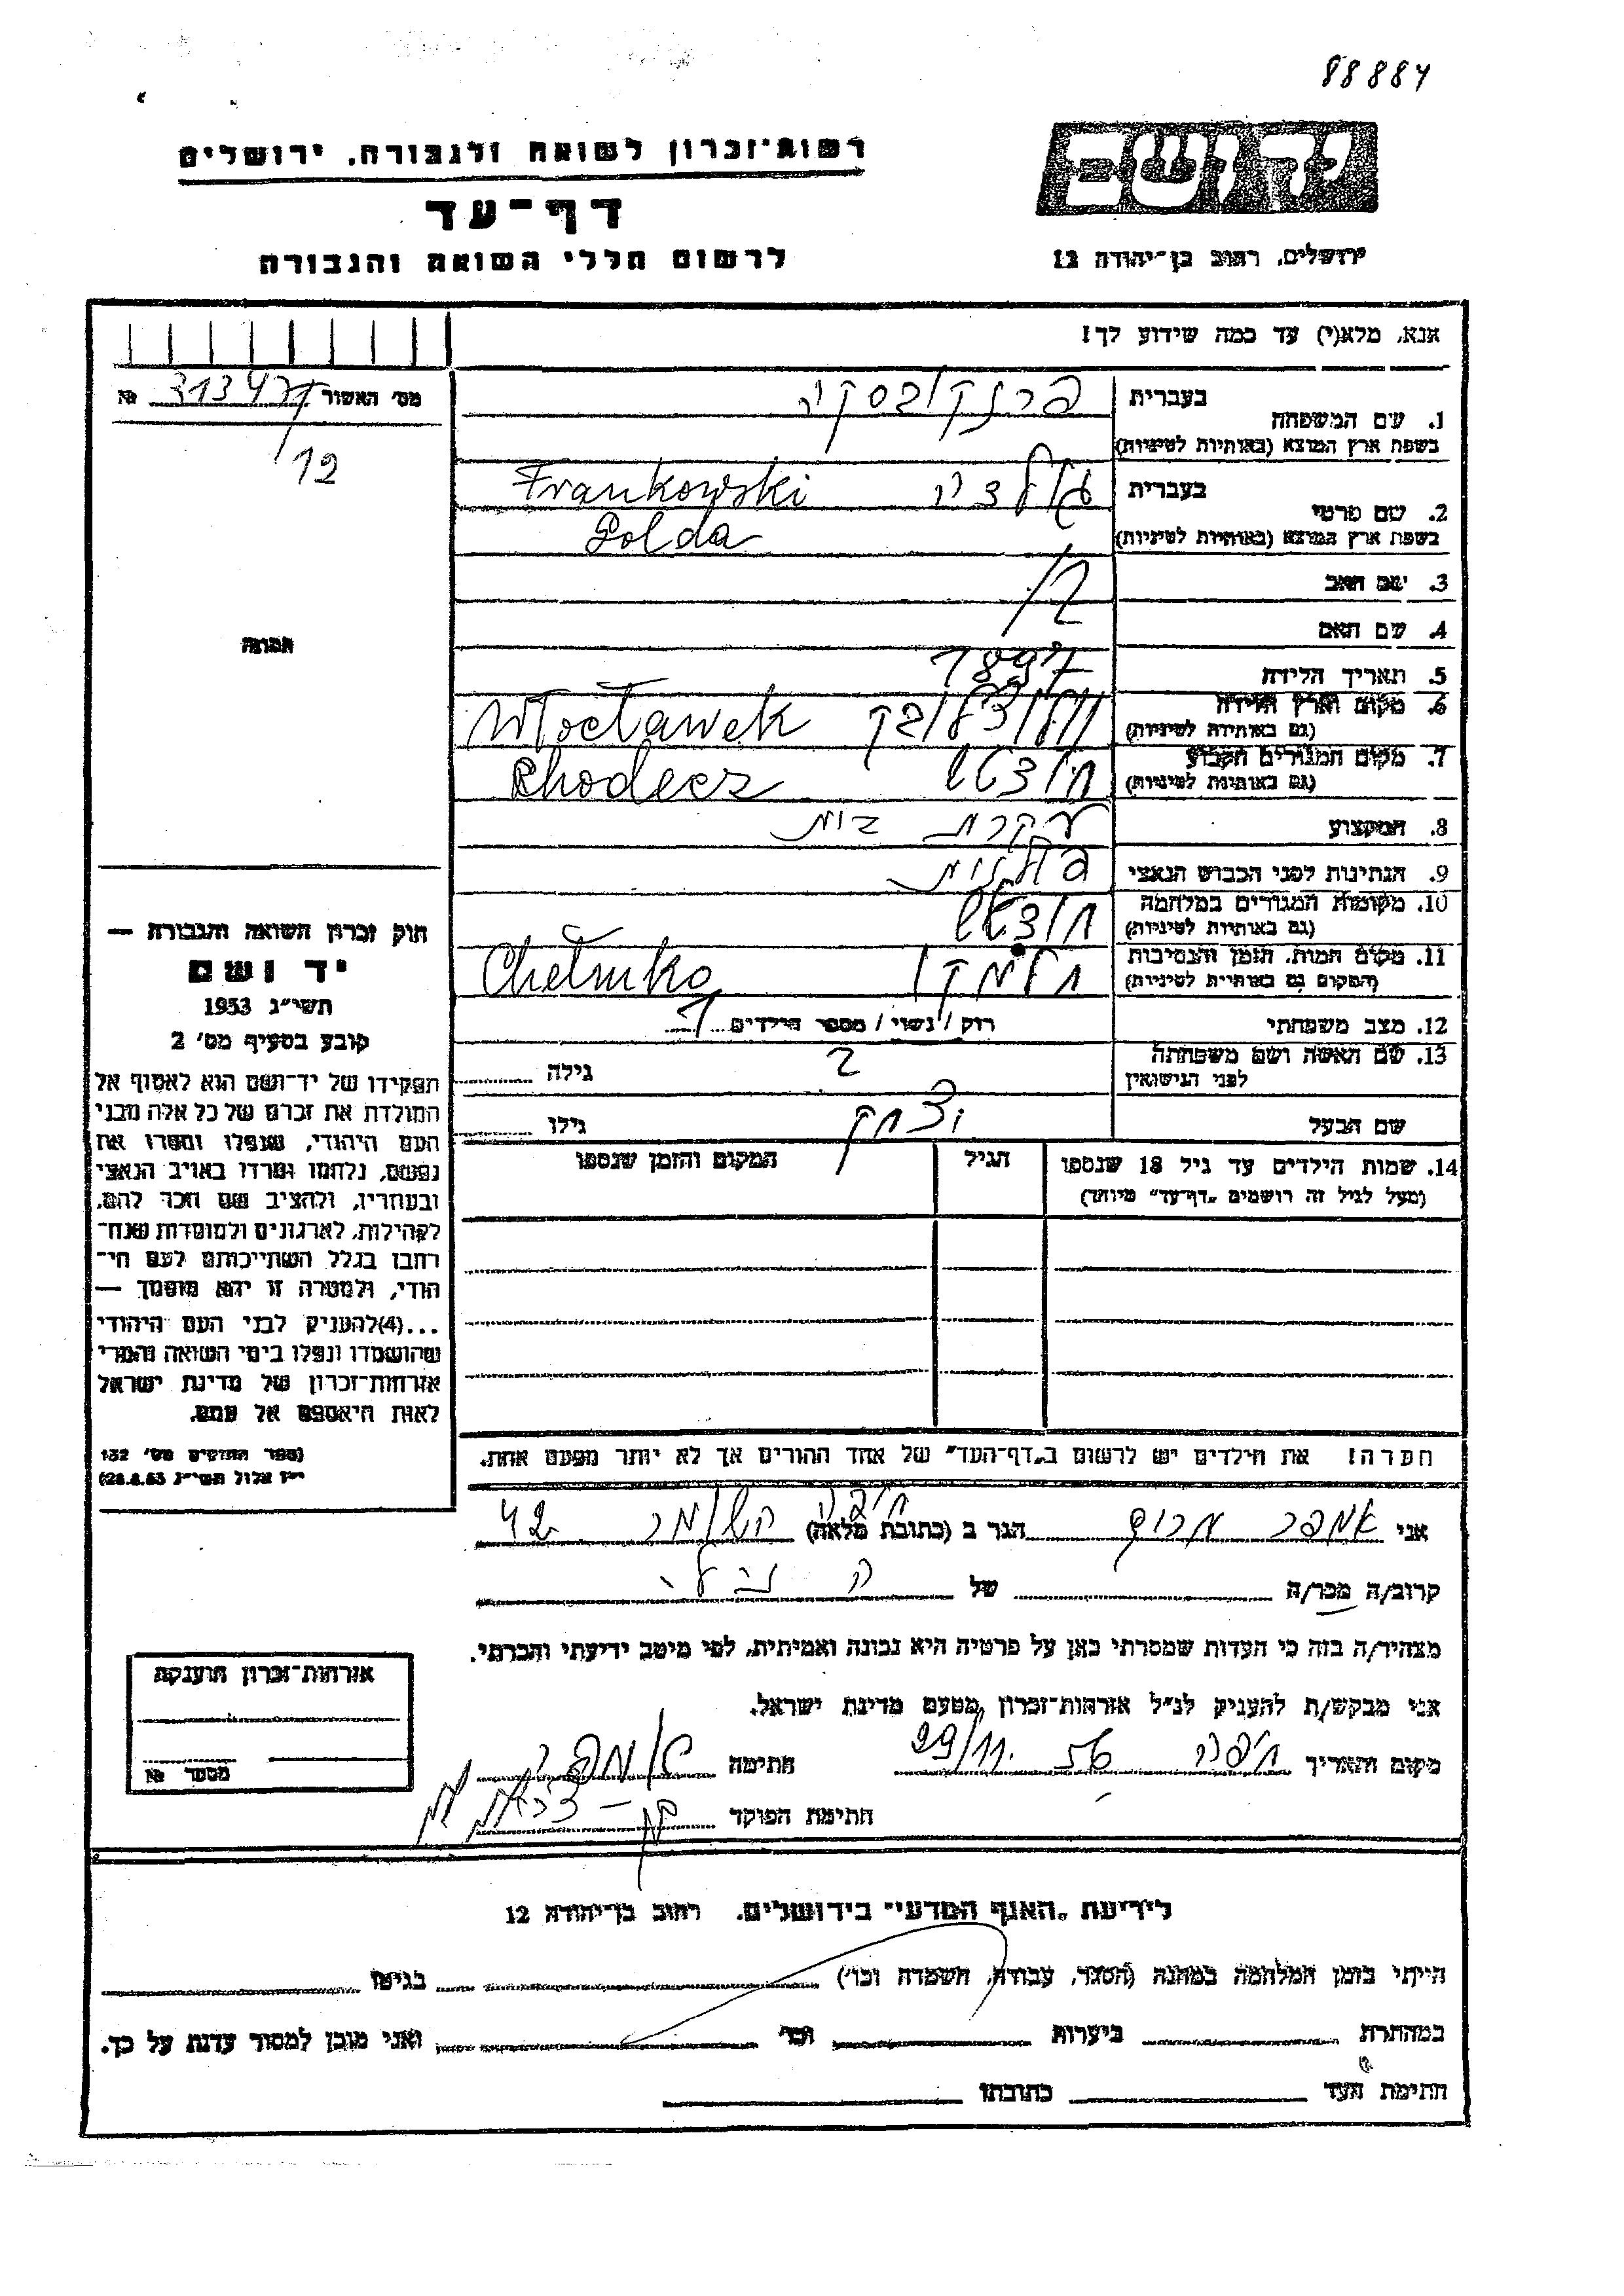 88884
רשות־זכרון לשואה ולגבורה, ירושלים
דף־עד
לרשום חללי השואה והגבורה
יד ושם
ירושלים, רחוב בן־יהודה 12
אנא, מלא(י) עד כמה שידוע לך!
מס' האשור 313471 №
12
תמונה
1. שם המשפחה בעברית פרנקובסקי
בשפת ארץ המוצא (באותיות לטיניות) Frankowski
2. שם פרטי בעברית
בשפת ארץ המוצא (באותיות לטיניות) Golda
3. שם האב
4. שם האם
5. תאריך הלידה 1897
6. מקום וארץ הלידה
(גם באותיות לטיניות) Włocławek
7. מקום המגורים הקבוע
(גם באותיות לטיניות) Chodecz חודץ
8. המקצוע עקרת בית
9. הנתינות לפני הכבוש הנאצי פולנית
10. מקומות המגורים במלחמה
(גם באותיות לטיניות) חודץ
11. מקום המות, הזמן והנסיבות
(המקום גם באותיות לטיניות) Chełmko חלמקו
12. מצב משפחתי רוק / נשוי / מספר הילדים 1
13. שם האשה ושם משפחתה
לפני הנישואין גילה
שם הבעל יצחק גילו
14. שמות הילדים עד גיל 18 שנספו הגיל המקום והזמן שנספו
(מעל לגיל זה רושמים „דף־עד" מיוחד)
הערה! את הילדים יש לרשום ב„דף־העד" של אחד ההורים אך לא יותר מפעם אחת.
חוק זכרון השואה והגבורה —
יד ושם
תשי"ג 1953
קובע בסעיף מס' 2
תפקידו של יד־ושם הוא לאסוף אל
המולדת את זכרם של כל אלה מבני
העם היהודי, שנפלו ומסרו את
נפשם, נלחמו ומרדו באויב הנאצי
ובעוזריו, ולהציב שם וזכר להם,
לקהילות, לארגונים ולמוסדות שנח־
רבו בגלל השתייכותם לעם הי־
הודי, ולמטרה זו יהא מוסמך —
...(4)להעניק לבני העם היהודי
שהושמדו ונפלו בימי השואה והמרי
אזרחות־זכרון של מדינת ישראל
לאות היאספם אל עמם.
(ספר החוקים מס' 132
י"ז אלול תשי"ג 28.8.53)
אני הגר ב (כתובת מלאה) חיפה השומר 42
קרוב/ה מכר/ה של
מצהיר/ה בזה כי העדות שמסרתי כאן על פרטיה היא נכונה ואמיתית, לפי מיטב ידיעתי והכרתי.
אני מבקש/ת להעניק לנ"ל אזרחות־זכרון מטעם מדינת ישראל.
מקום ותאריך חיפה 29/11. 56 חתימה
חתימת הפוקד
אזרחות־זכרון הוענקה
מספר №
לידיעת „האגף המדעי" בירושלים, רחוב בן־יהודה 12
הייתי בזמן המלחמה במחנה (הסגר, עבודה, השמדה וכו') בגיטו
במחתרת ביערות וכו' ואני מוכן למסור עדות על כך.
חתימת העד כתובתו